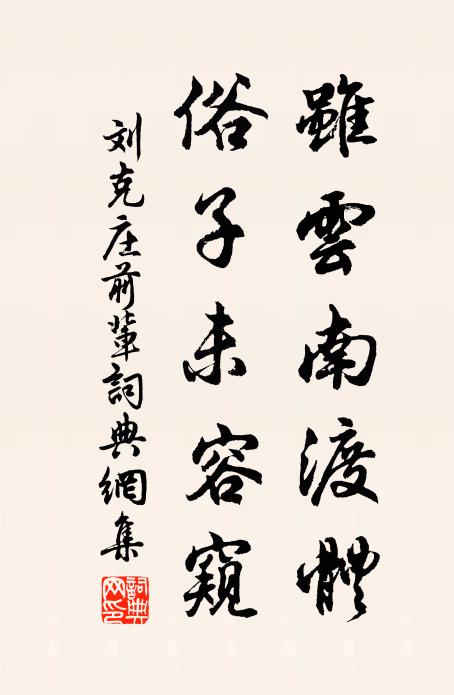 雖雲南渡體
俗子未容窺
刘克庄前輩詞典網集
詞典網印